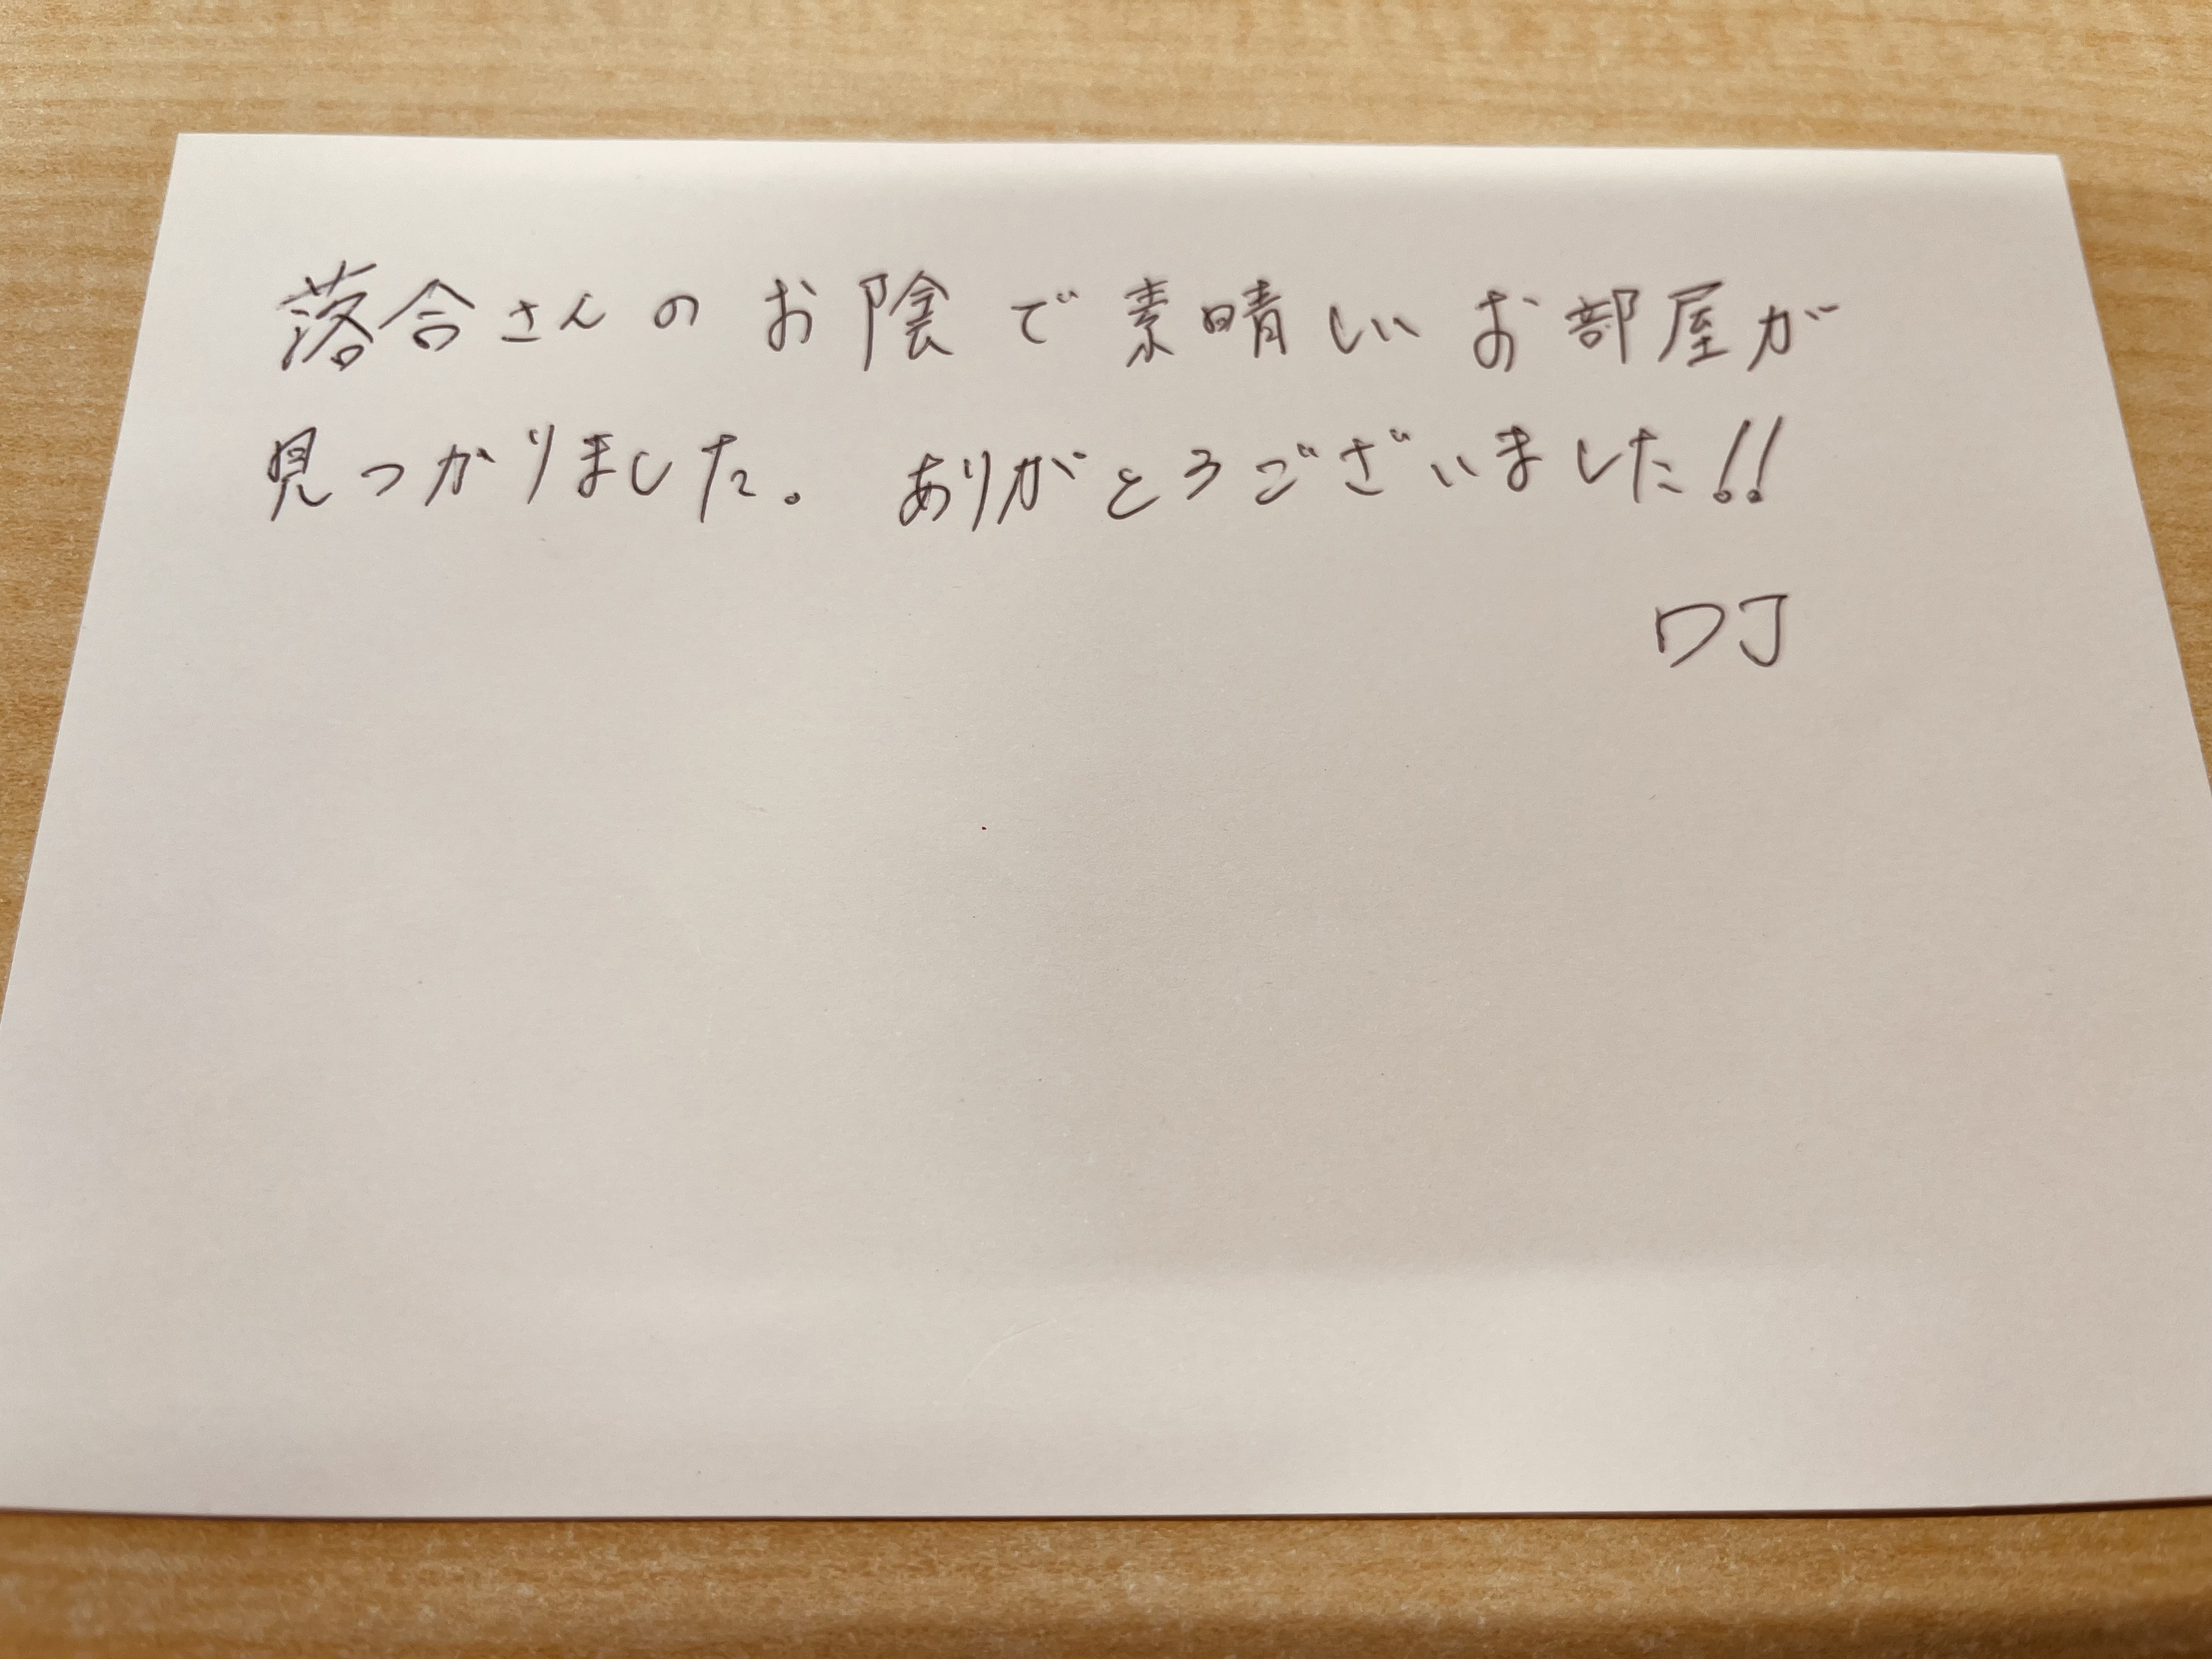 落合さんのお陰で素晴しいお部屋が
見つかりました。ありがとうございました!!
DJ